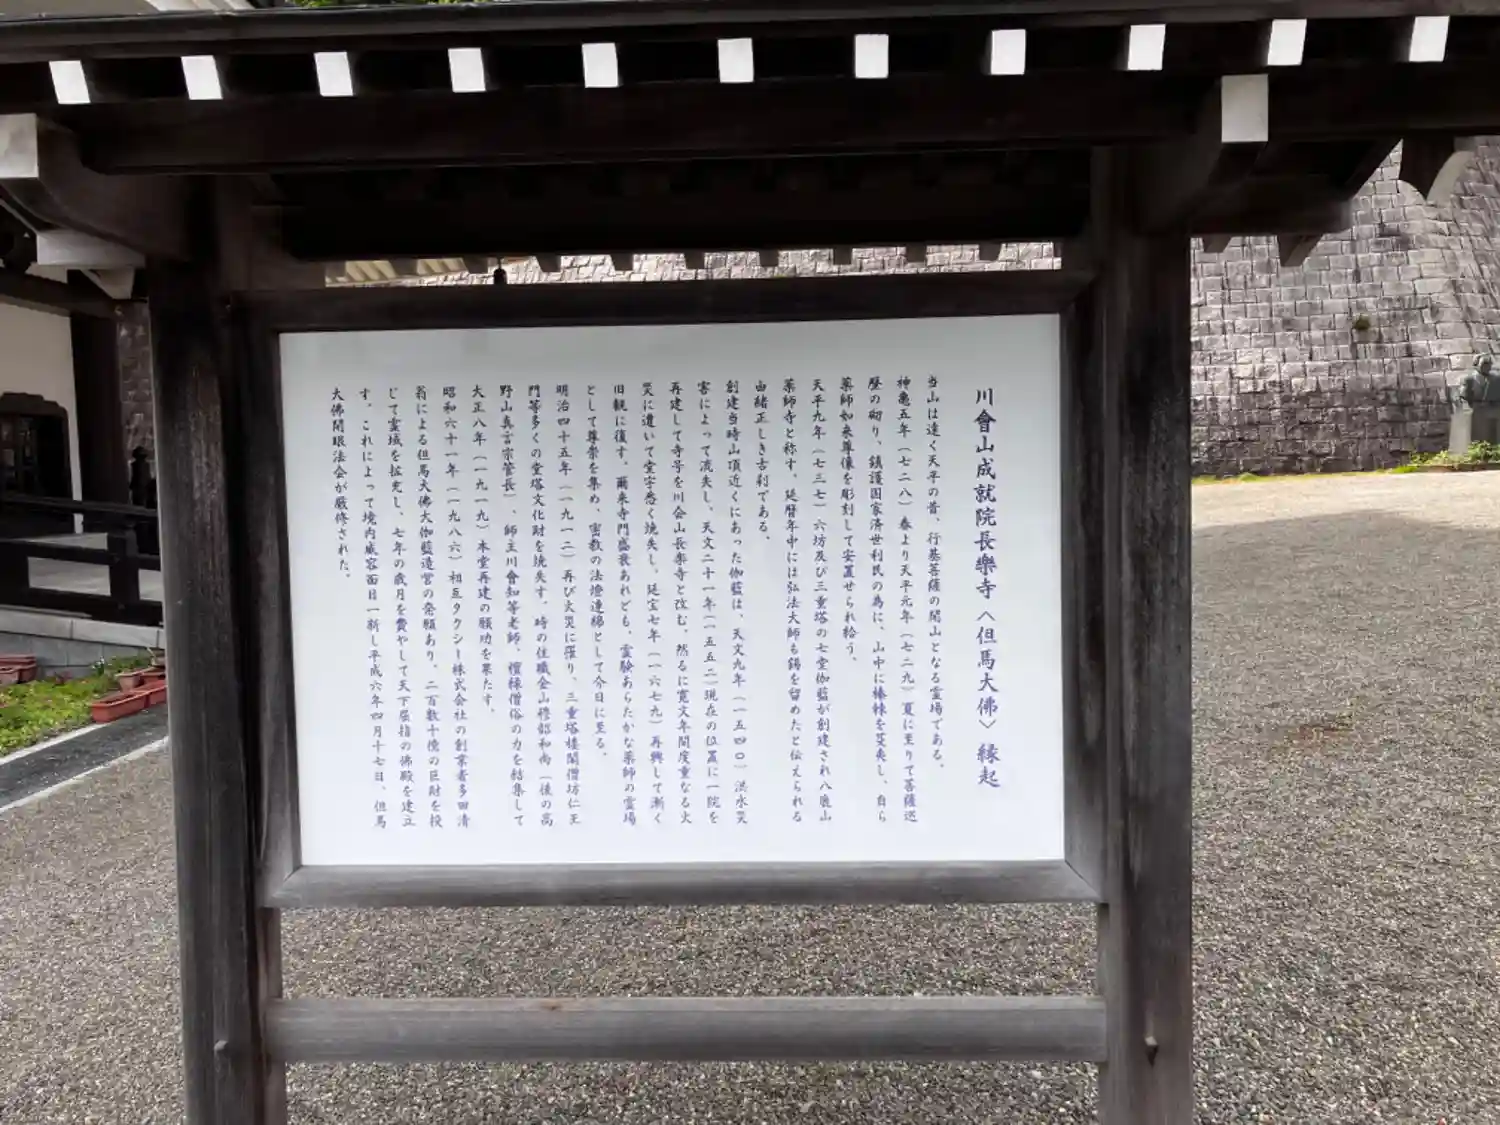 川會山成就院長樂寺〈但馬大佛〉縁起
当山は遠く天平の昔、行基菩薩の開山となる霊場である。
神亀五年（七二八）春より天平元年（七二九）夏に至りて菩薩巡
歴の砌り、鎮護国家済世利民の為に、山中に榛棘を芟夷し、自ら
薬師如来尊像を彫刻して安置せられ給う。
天平九年（七三七）六坊及び三重塔の七堂伽藍が創建され八鹿山
薬師寺と称す。延暦年中には弘法大師も錫を留めたと伝えられる
由緒正しき古刹である。
創建当時山頂近くにあった伽藍は、天文九年（一五四〇）洪水災
害によって流失し、天文二十一年（一五五二）現在の位置に一院を
再建して寺号を川会山長楽寺と改む。然るに寛文年間度重なる火
災に遭いて堂宇悉く焼失し、延宝七年（一六七九）再興して漸く
旧観に復す。爾来寺門盛衰あれども、霊験あらたかな薬師の霊場
として尊崇を集め、密教の法燈連綿として今日に至る。
明治四十五年（一九一二）再び火災に罹り、三重塔楼閣僧坊仁王
門等多くの堂塔文化財を焼失す。時の住職金山穆韶和尚（後の高
野山真言宗管長）、師主川會知等老師、檀縁僧俗の力を結集して
大正八年（一九一九）本堂再建の願功を果たす。
昭和六十一年（一九八六）相互タクシー株式会社の創業者多田清
翁による但馬大佛大伽藍造営の発願あり、二百数十億の巨財を投
じて霊域を拡充し、七年の歳月を費やして天下屈指の佛殿を建立
す。これによって境内威容面目一新し平成六年四月十七日、但馬
大佛開眼法会が厳修された。